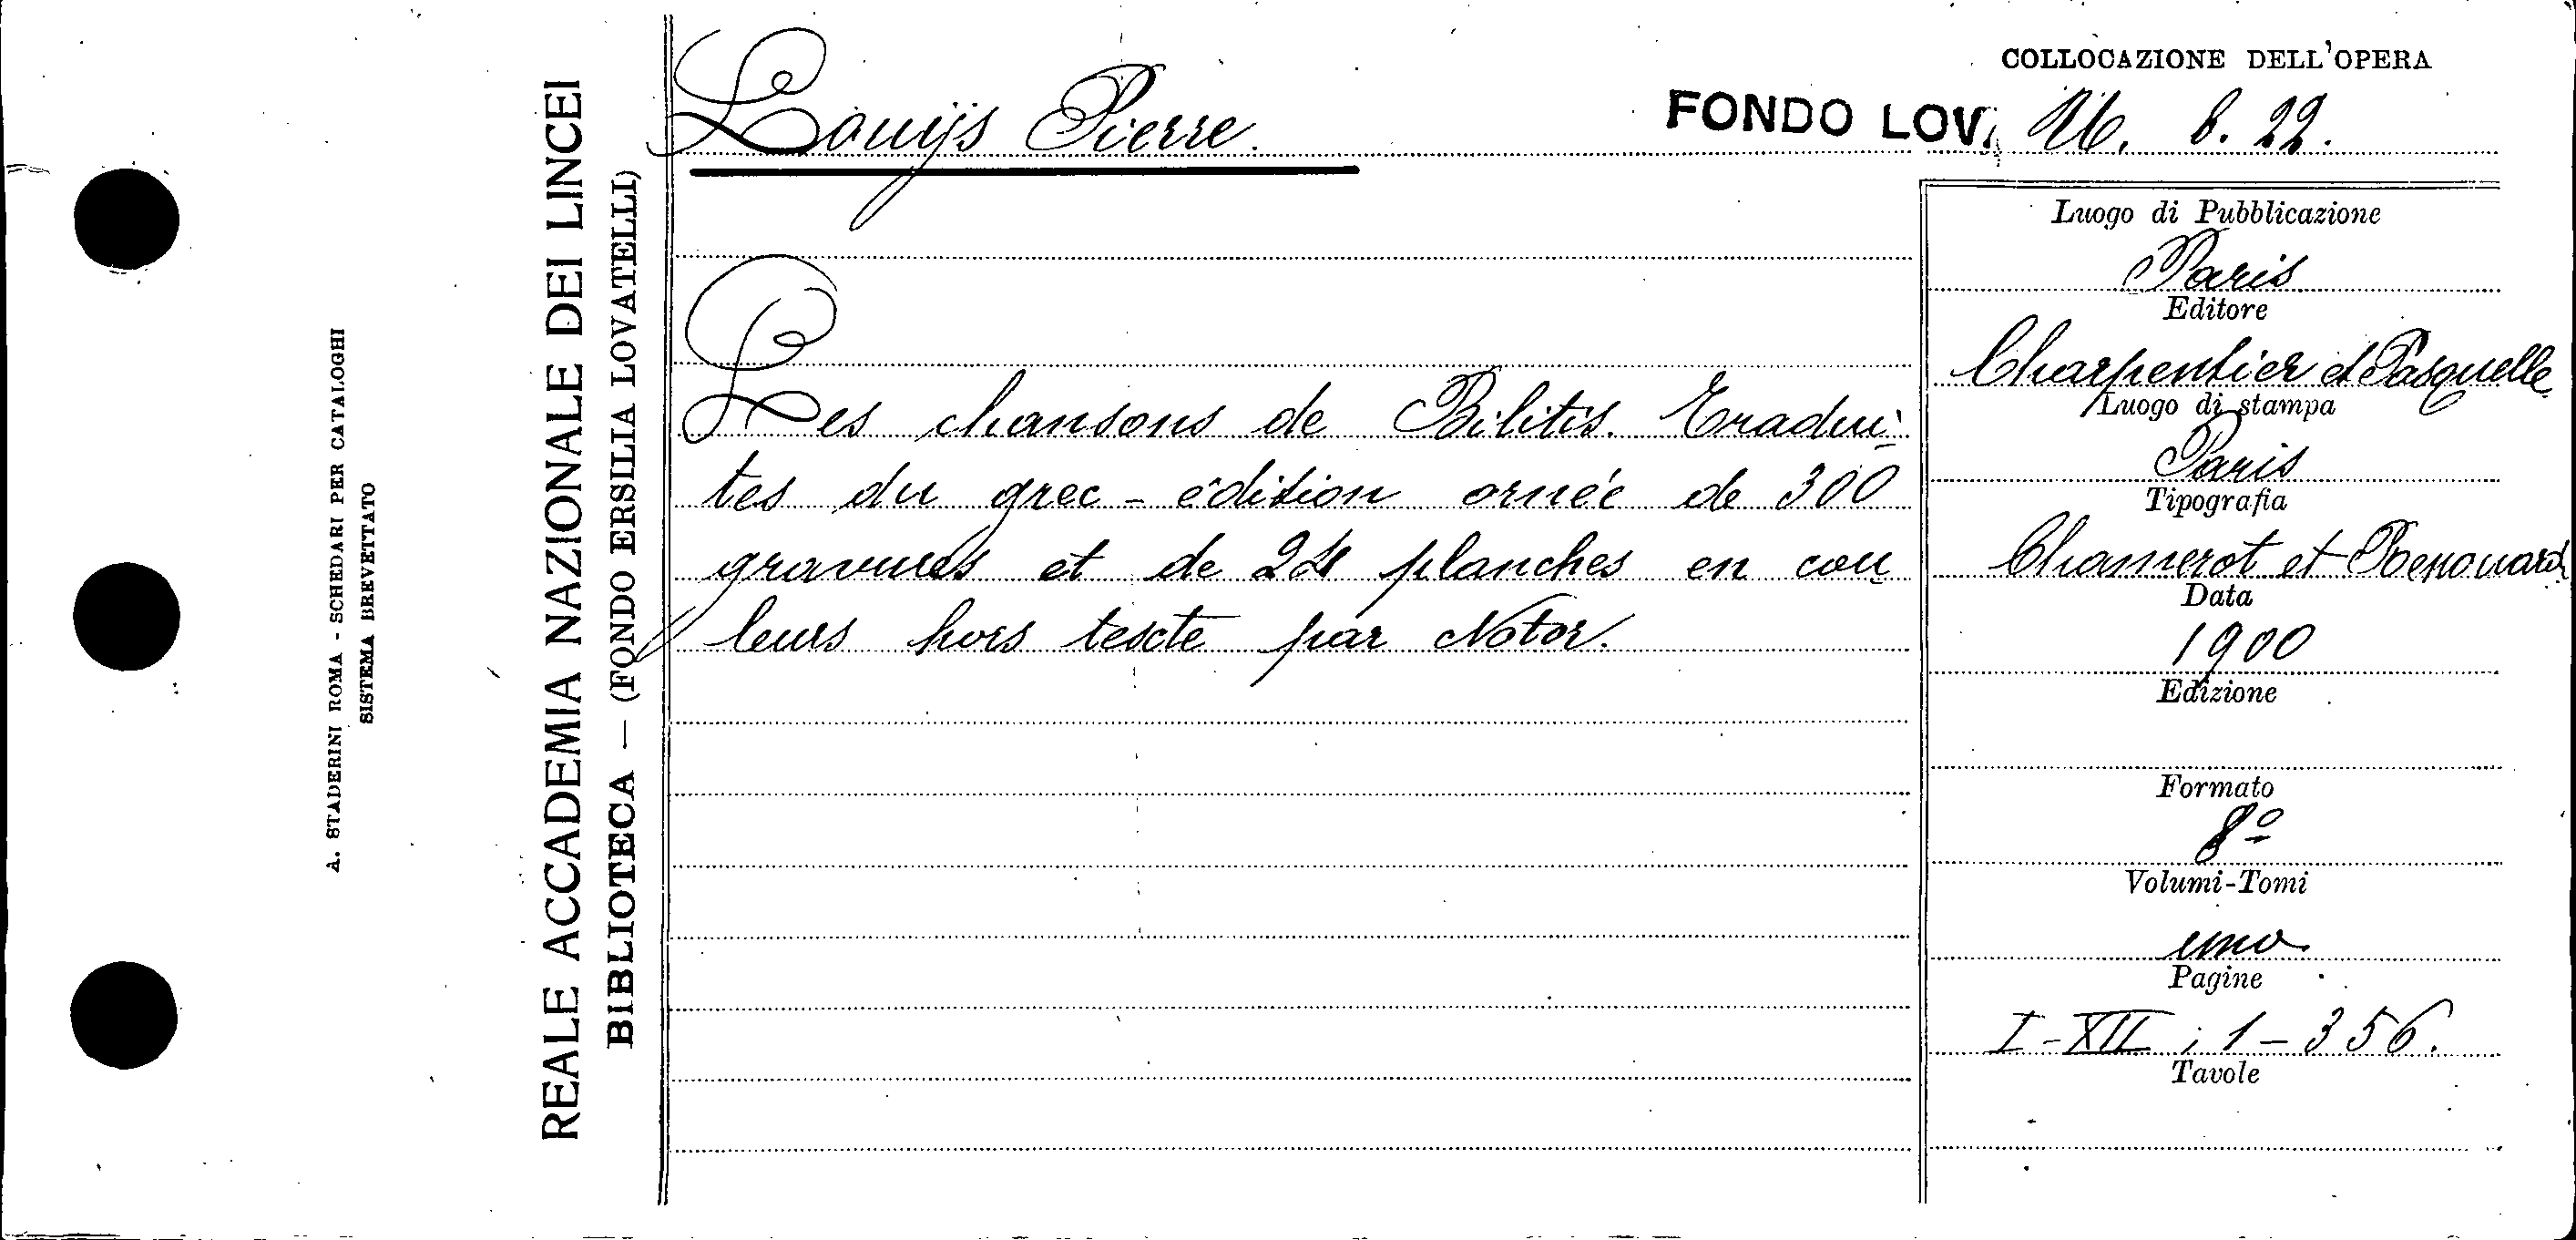 A. STADERINI ROMA - SCHEDARI PER CATALOGHI
SISTEMA BREVETTATO
REALE ACCADEMIA NAZIONALE DEI LINCEI
BIBLIOTECA — (FONDO ERSILIA LOVATELLI)
Louijs Pierre.
COLLOCAZIONE DELL'OPERA
FONDO LOV. 8. 22.
Les chansons de Bilitis. Tradui-
tes du grec - édition ornée de 300
gravures et de 24 planches en cou
leurs hors texte par Notor.
Luogo di Pubblicazione
Paris
Editore
Charpentier et Fasquelle
Luogo di stampa
Paris
Tipografia
Chamerot et Renouard
Data
1900
Edizione
Formato
8º
Volumi-Tomi
uno
Pagine
I-XII; 1-356.
Tavole